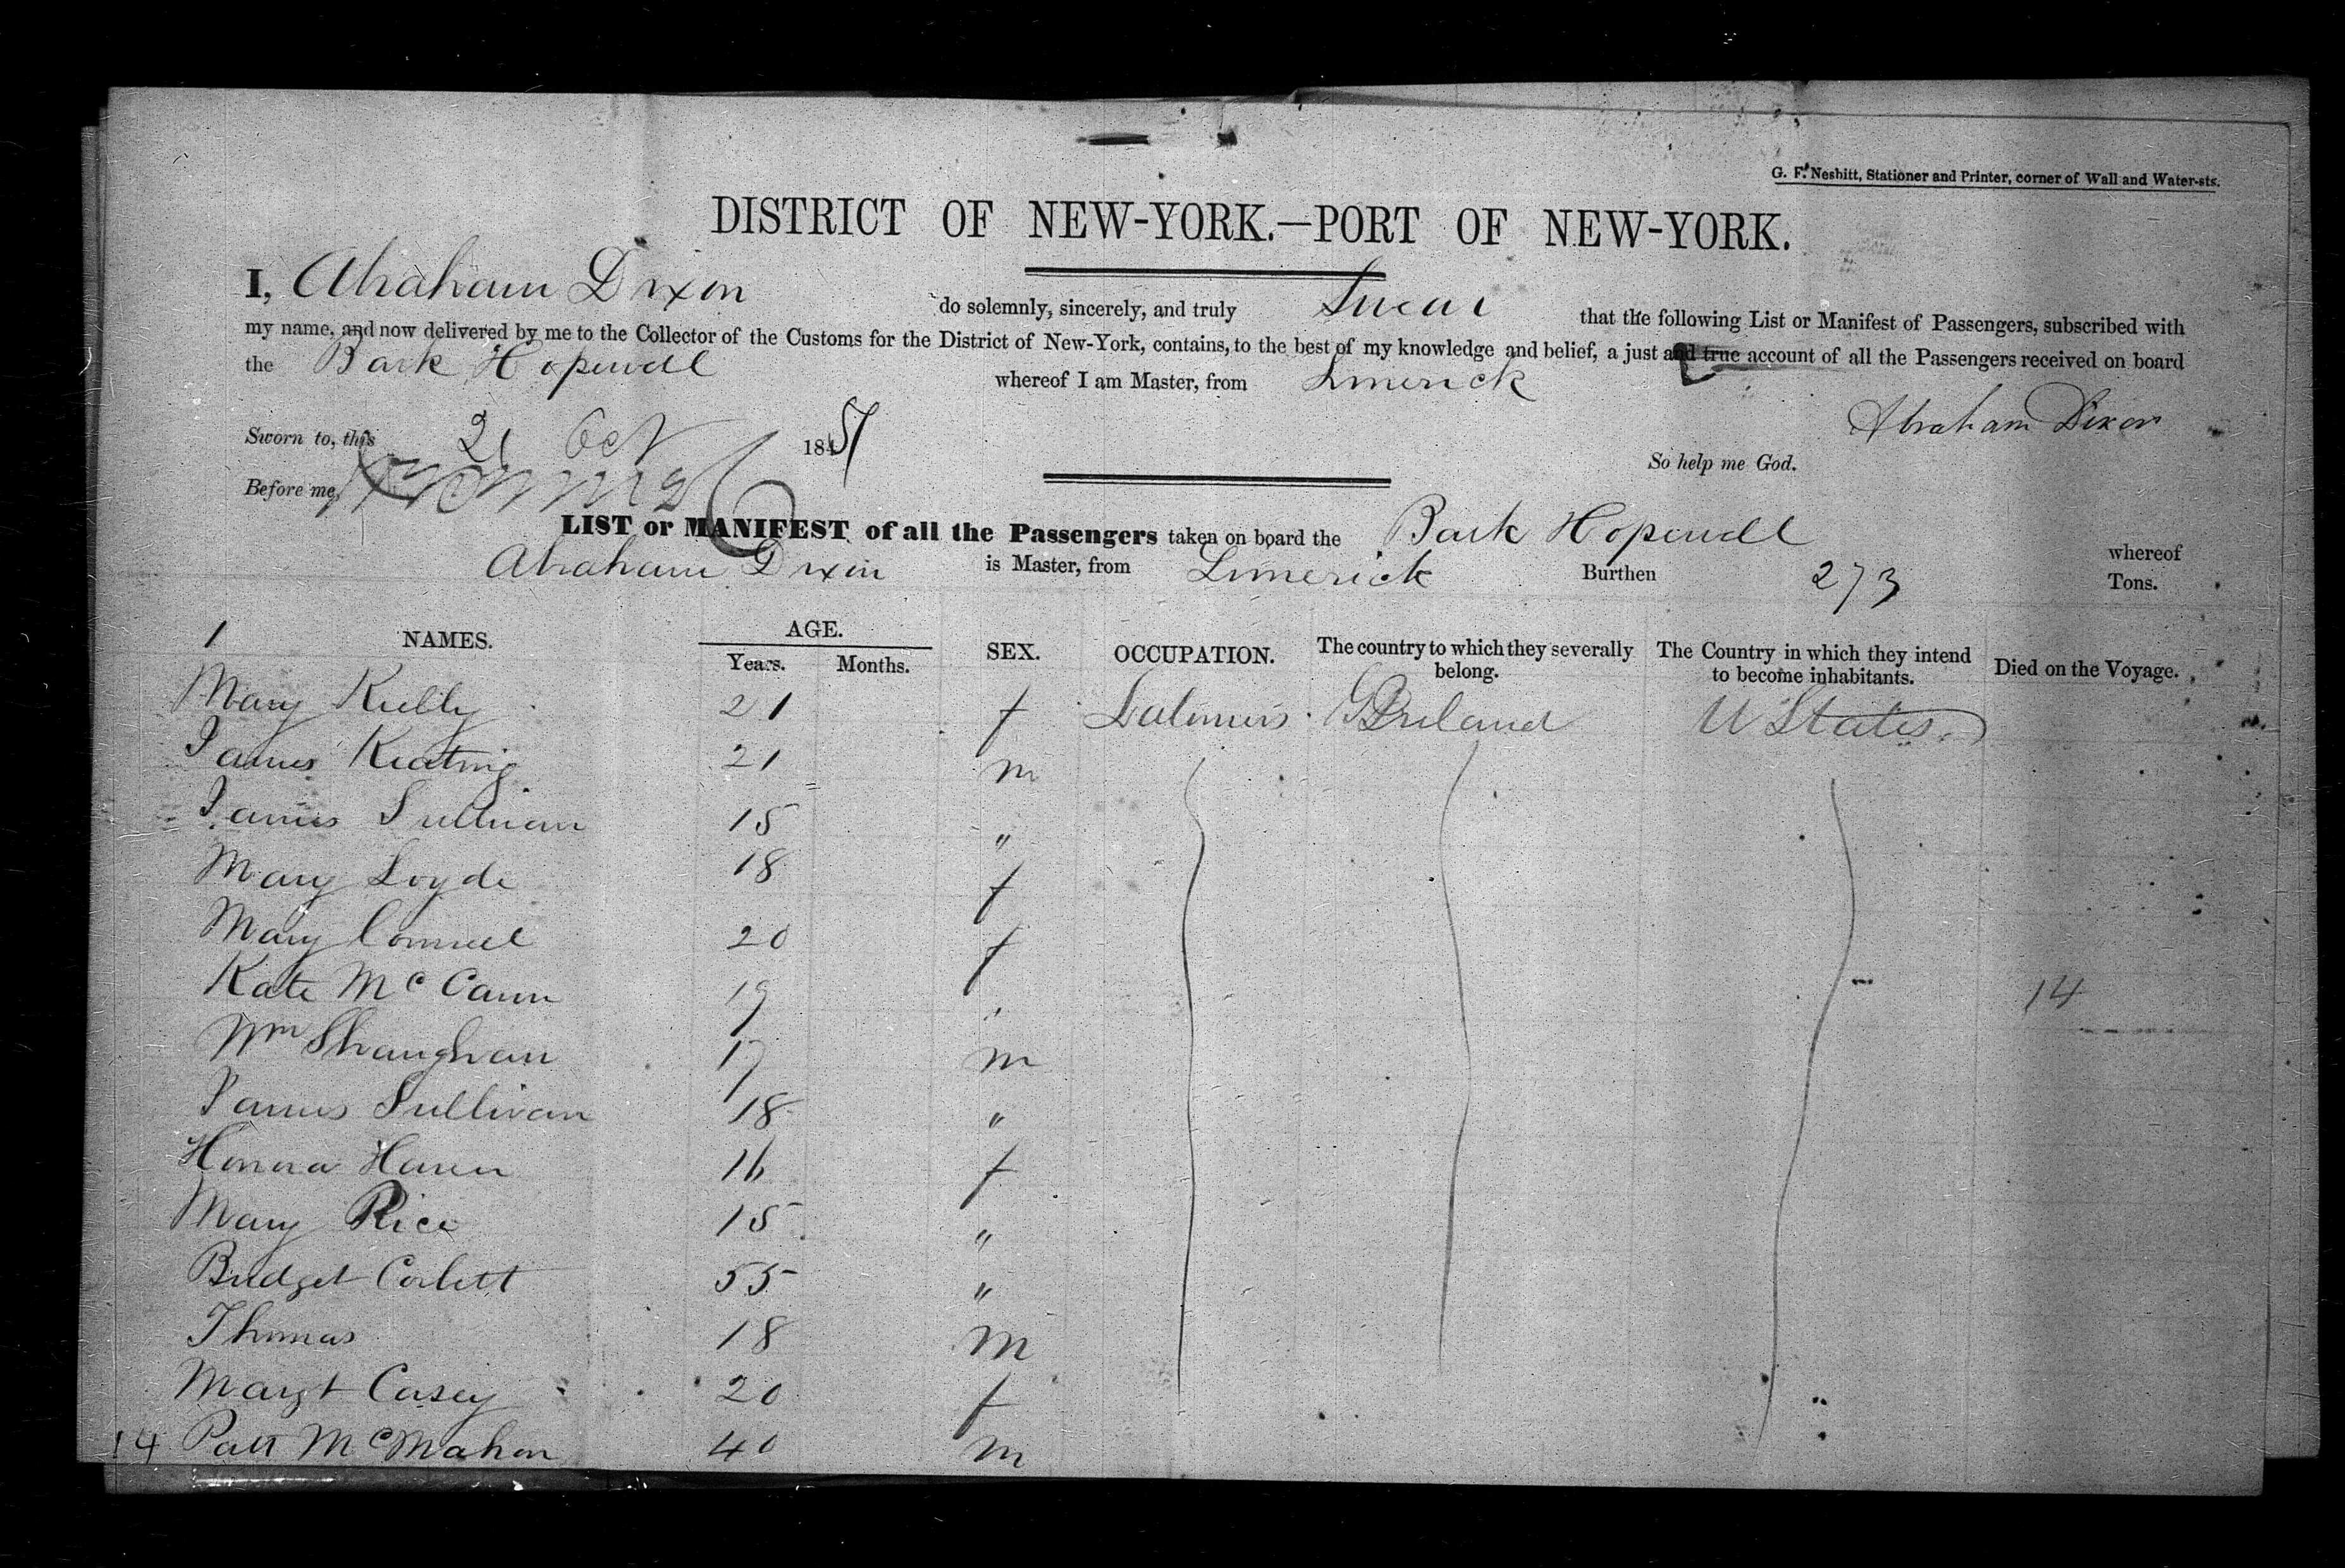 G. F. Nesbitt, Stationer and Printer, corner of Wall and Water-sts.
DISTRICT OF NEW-YORK.—PORT OF NEW-YORK.
I, Abraham Dixon do solemnly, sincerely, and truly Swear that the following List or Manifest of Passengers, subscribed with
my name, and now delivered by me to the Collector of the Customs for the District of New-York, contains, to the best of my knowledge and belief, a just and true account of all the Passengers received on board
the Bark Hopewell whereof I am Master, from Limerick
Abraham Dixon
Sworn to, this 21 Oct 1851
So help me God.
Before me,
LIST or MANIFEST of all the Passengers taken on board the Bark Hopewell whereof
Abraham Dixon is Master, from Limerick Burthen 273 Tons.
1 NAMES. AGE. Years. Months. SEX. OCCUPATION. The country to which they severally belong. The Country in which they intend to become inhabitants. Died on the Voyage.
Mary Kielly 21 f Ireland U States
James Keating 21 m
James Sullivan 15 "
Mary Loyde 18 f
Mary Connell 20 f
Kate McCann 19 " 14
Wm Shaughan 17 m
James Sullivan 18 "
Honora Haren 16 f
Mary Rice 15 "
Bridget Corbett 55 "
Thomas 18 m
Margt Casey 20 f
14 Patt McMahon 40 m